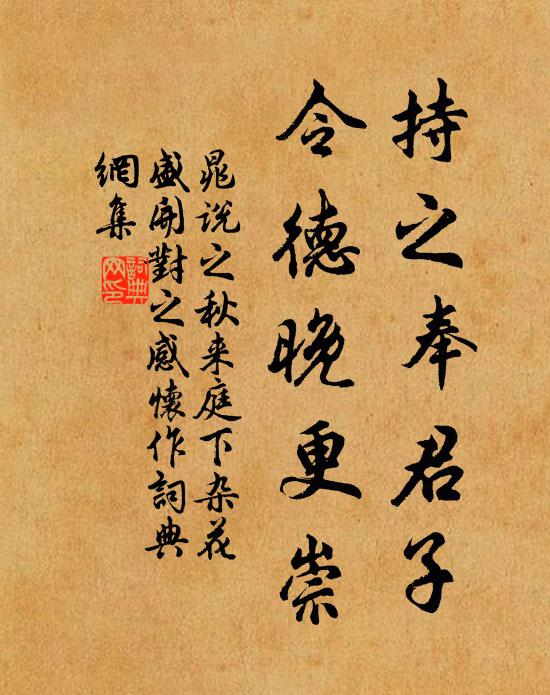 持之奉君子
令德晚更崇
晁说之秋来庭下杂花
盛開對之感懷作詞典
網集
詞典
网印